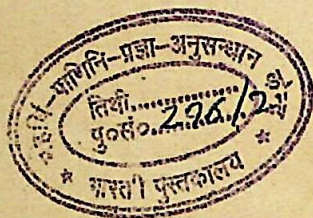 महर्षि-पाणिनि-प्रज्ञा-अनुसन्धान
तिथी..............
पु०सं०...296/2
* भारती पुस्तकालय *